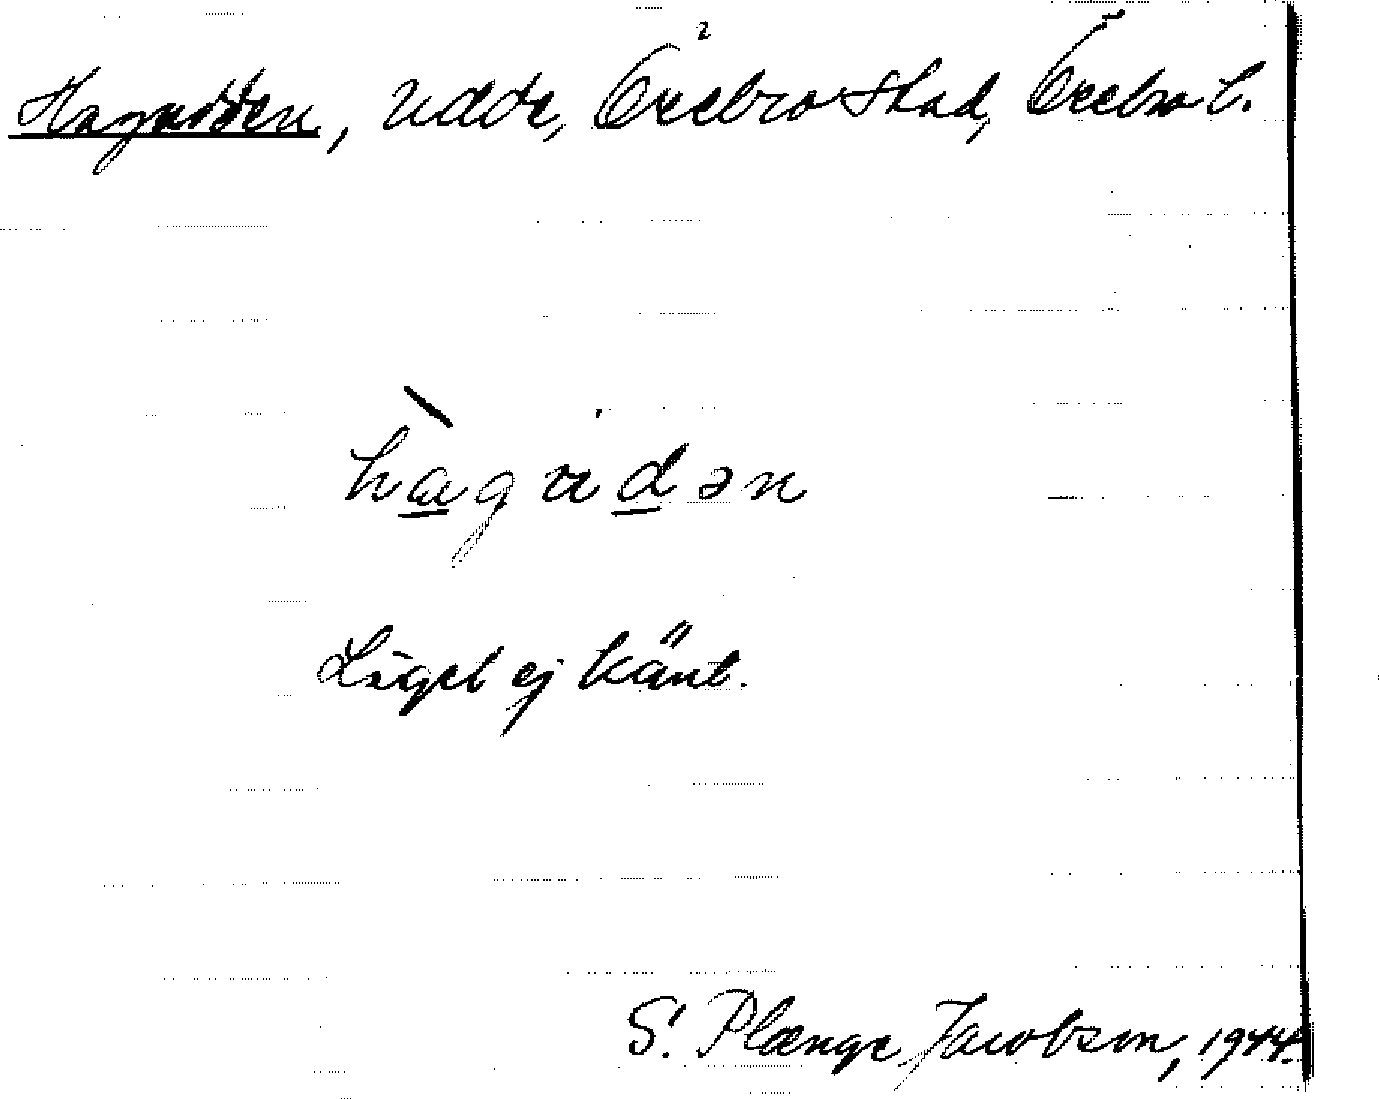 Hagudden, Udde, Örebro stad, Örebro l.
hagudən
Läget ej känt.
S. Plænge Jacobson, 1944.